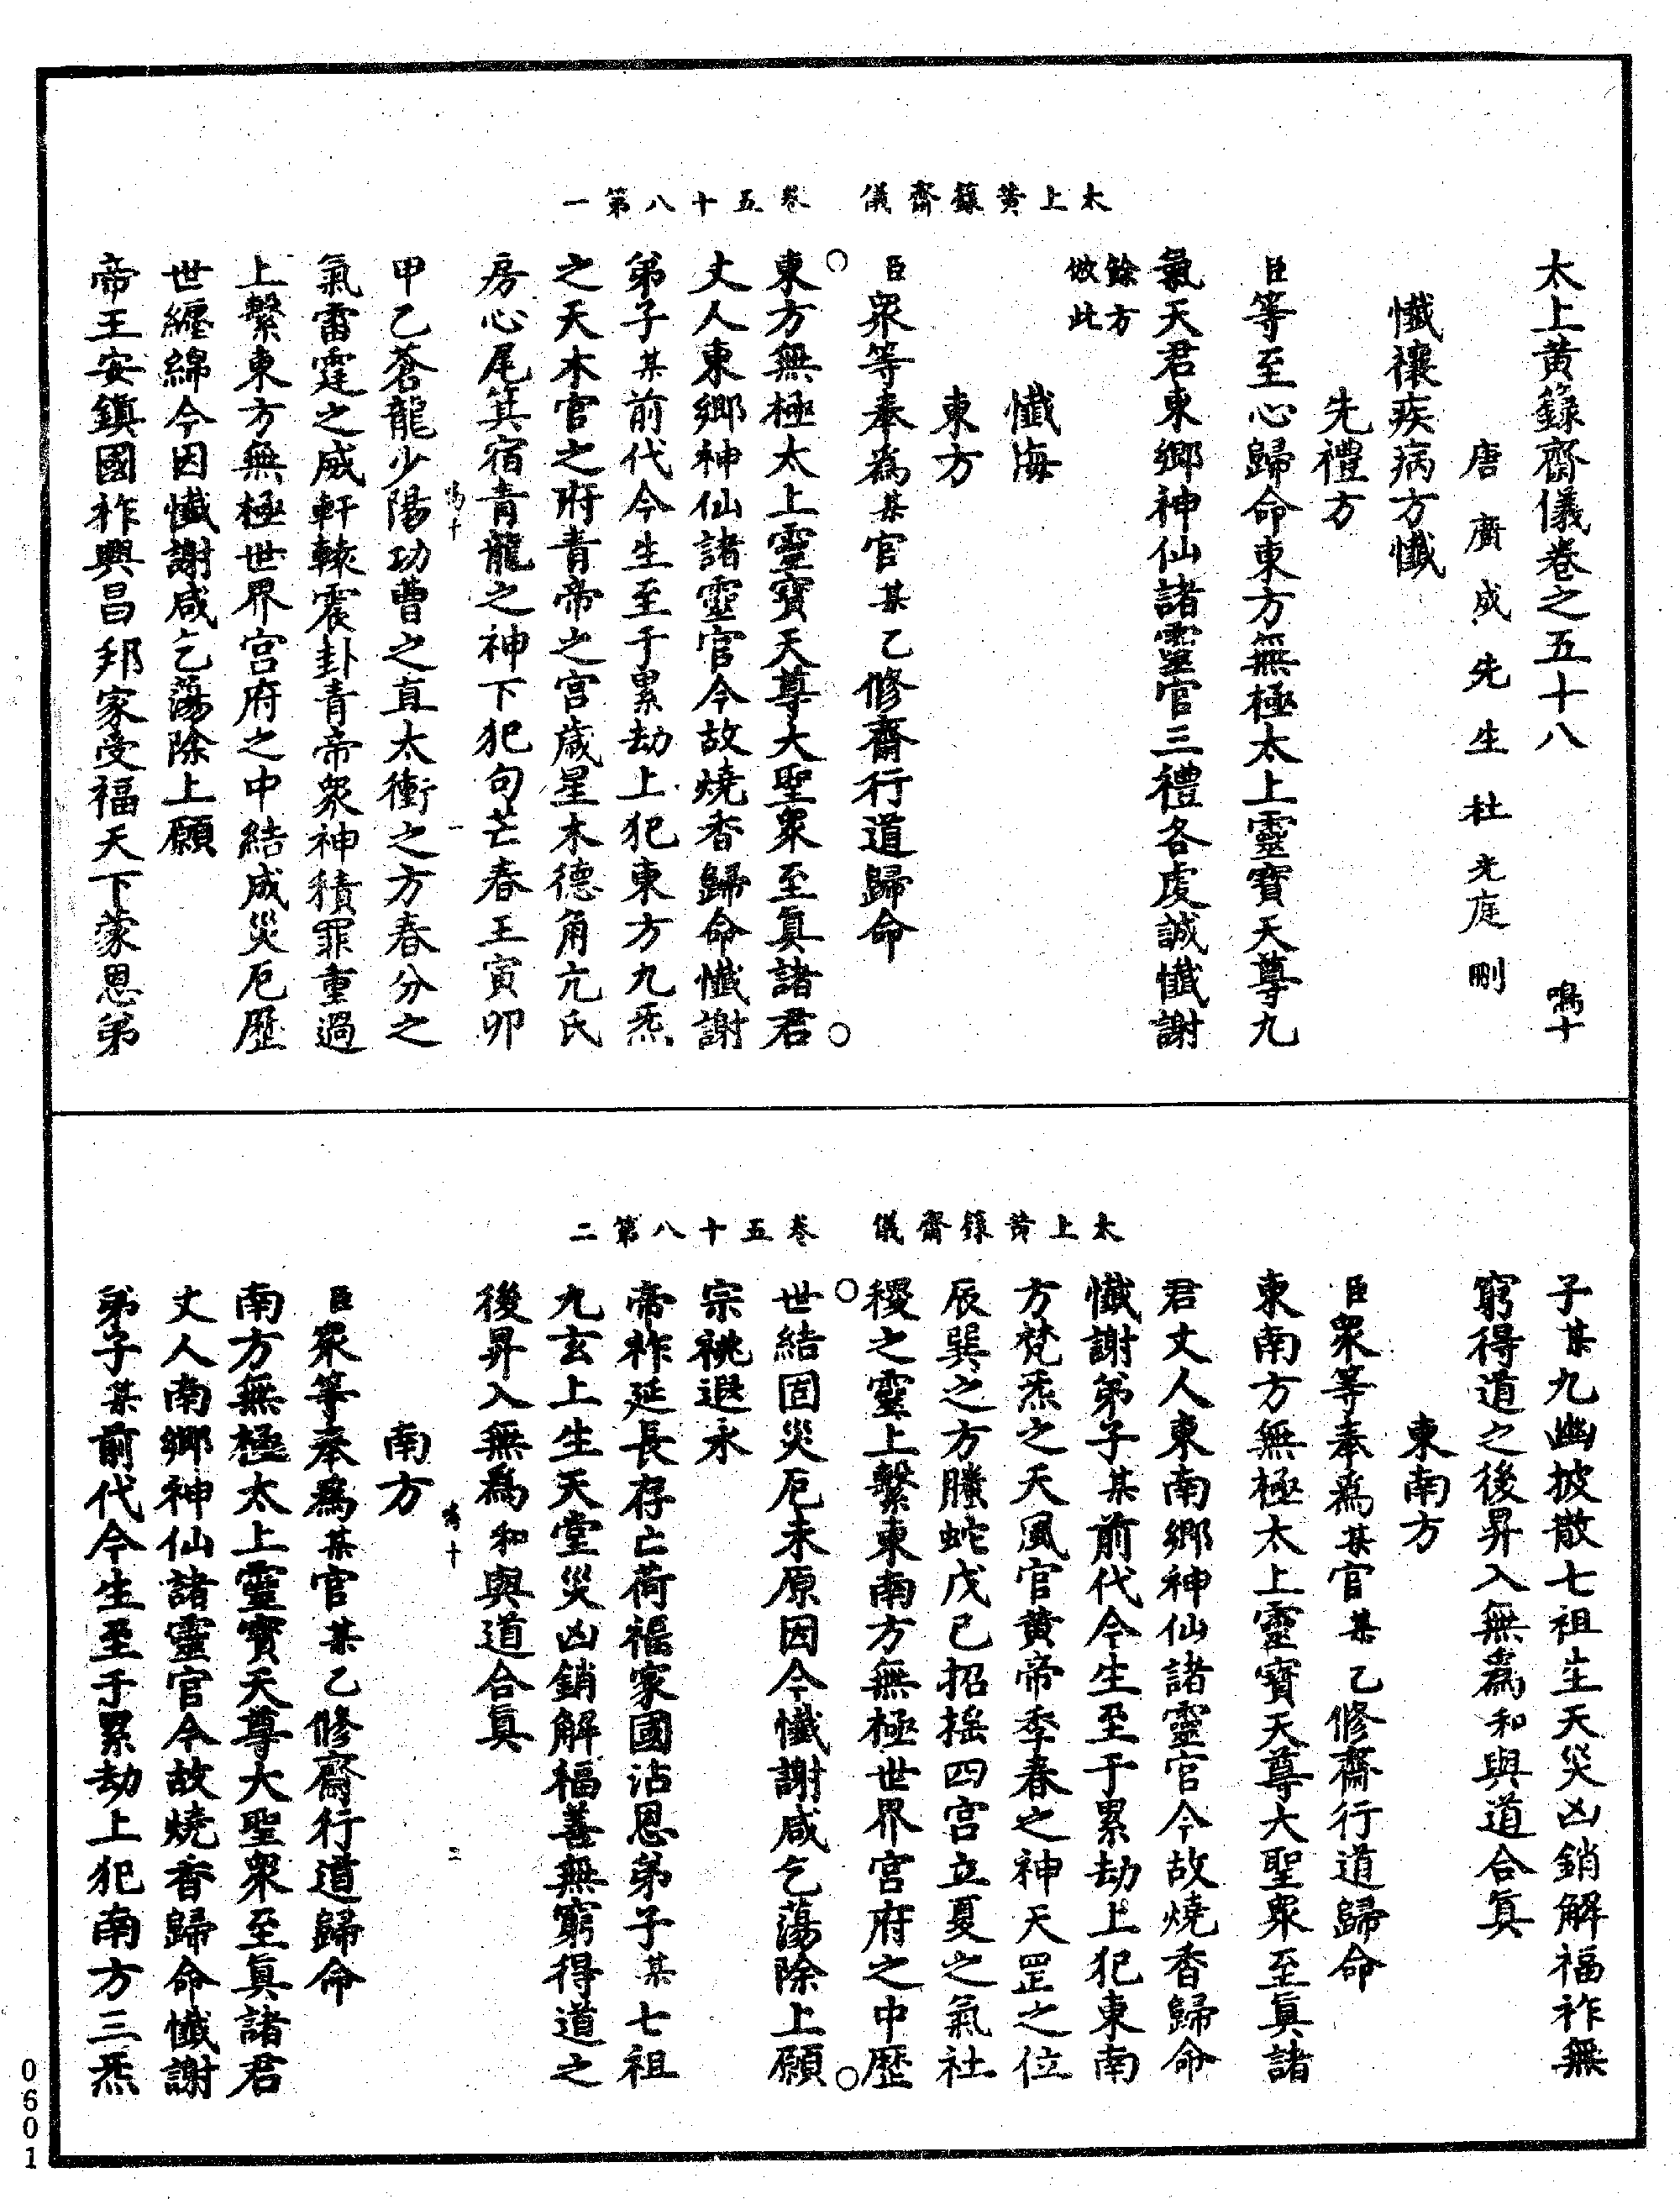 太上黃籙齋儀　卷五十八第一
太上黃籙齋儀卷之五十八　鳴十
唐廣成先生杜光庭刪
懺禳疾病方懺
先禮方
臣等至心歸命東方無極太上靈寶天尊九
氣天君東鄉神仙諸靈官三禮各虔誠懺謝
餘方
倣此
懺悔
東方
臣眾等奉爲某官某乙修齋行道歸命
東方無極太上靈寶天尊大聖眾至真諸君
丈人東鄉神仙諸靈官今故燒香歸命懺謝
弟子某前代今生至于累劫上犯東方九炁
之天木官之府青帝之宮歲星木德角亢氐
房心尾箕宿青龍之神下犯句芒春王寅卯
鳴十　一
甲乙蒼龍少陽功曹之直太衝之方春分之
氣雷霆之威軒轅震卦青帝眾神積罪重過
上繫東方無極世界宮府之中結成災厄歷
世纏綿今因懺謝咸乞蕩除上願
帝王安鎮國祚興昌邦家受福天下蒙恩弟
太上黃籙齋儀　卷五十八第二
子某九幽披散七祖生天災凶銷解福祚無
窮得道之後昇入無爲和與道合真
東南方
臣眾等奉爲某官某乙修齋行道歸命
東南方無極太上靈寶天尊大聖眾至真諸
君丈人東南鄉神仙諸靈官今故燒香歸命
懺謝弟子某前代今生至于累劫上犯東南
方梵炁之天風官黃帝季春之神天罡之位
辰巽之方螣蛇戊己招搖四宮立夏之氣社
稷之靈上繫東南方無極世界宮府之中歷
世結固災厄未原因今懺謝咸乞蕩除上願
宗祧遐永
帝祚延長存亡荷福家國沾恩弟子某七祖
九玄上生天堂災凶銷解福善無窮得道之
後昇入無爲和與道合真
鳴十　二
南方
臣眾等奉爲某官某乙修齋行道歸命
南方無極太上靈寶天尊大聖眾至真諸君
丈人南鄉神仙諸靈官今故燒香歸命懺謝
弟子某前代今生至于累劫上犯南方三炁
0601